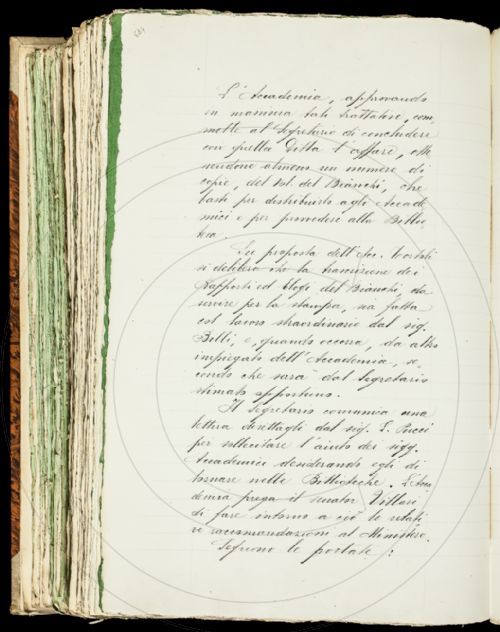 L'Accademia, approvando
in massima tali trattative, com
mette al Segretario di concludere
con quella Ditta l'affare, otte
nendone almeno un numero di
copie, del Vol. del Bianchi, che
basti per distribuirlo agli Accade
mici e per provvedere alla Biblio
teca.
Su proposta dell'Acc.
si delibera che la trascrizione dei
Rapporti ed Elogi del Bianchi, da
servire per la stampa, sia fatta
col lavoro straordinario dal sig.
Belli, e, quando occorra, da altro
impiegato dell'Accademia, se_
condo che sarà dal Segretario
stimato opportuno.
Il Segretario comunica una
lettera direttagli dal sig. Pucci
per sollecitare l'aiuto dei sigg.
Accademici desiderando egli di
tornare nelle Biblioteche. L'Acca
demia prega il senator Villari
di fare intorno a ciò le relati
ve raccomandazioni al Ministero.
Seguono le portate: